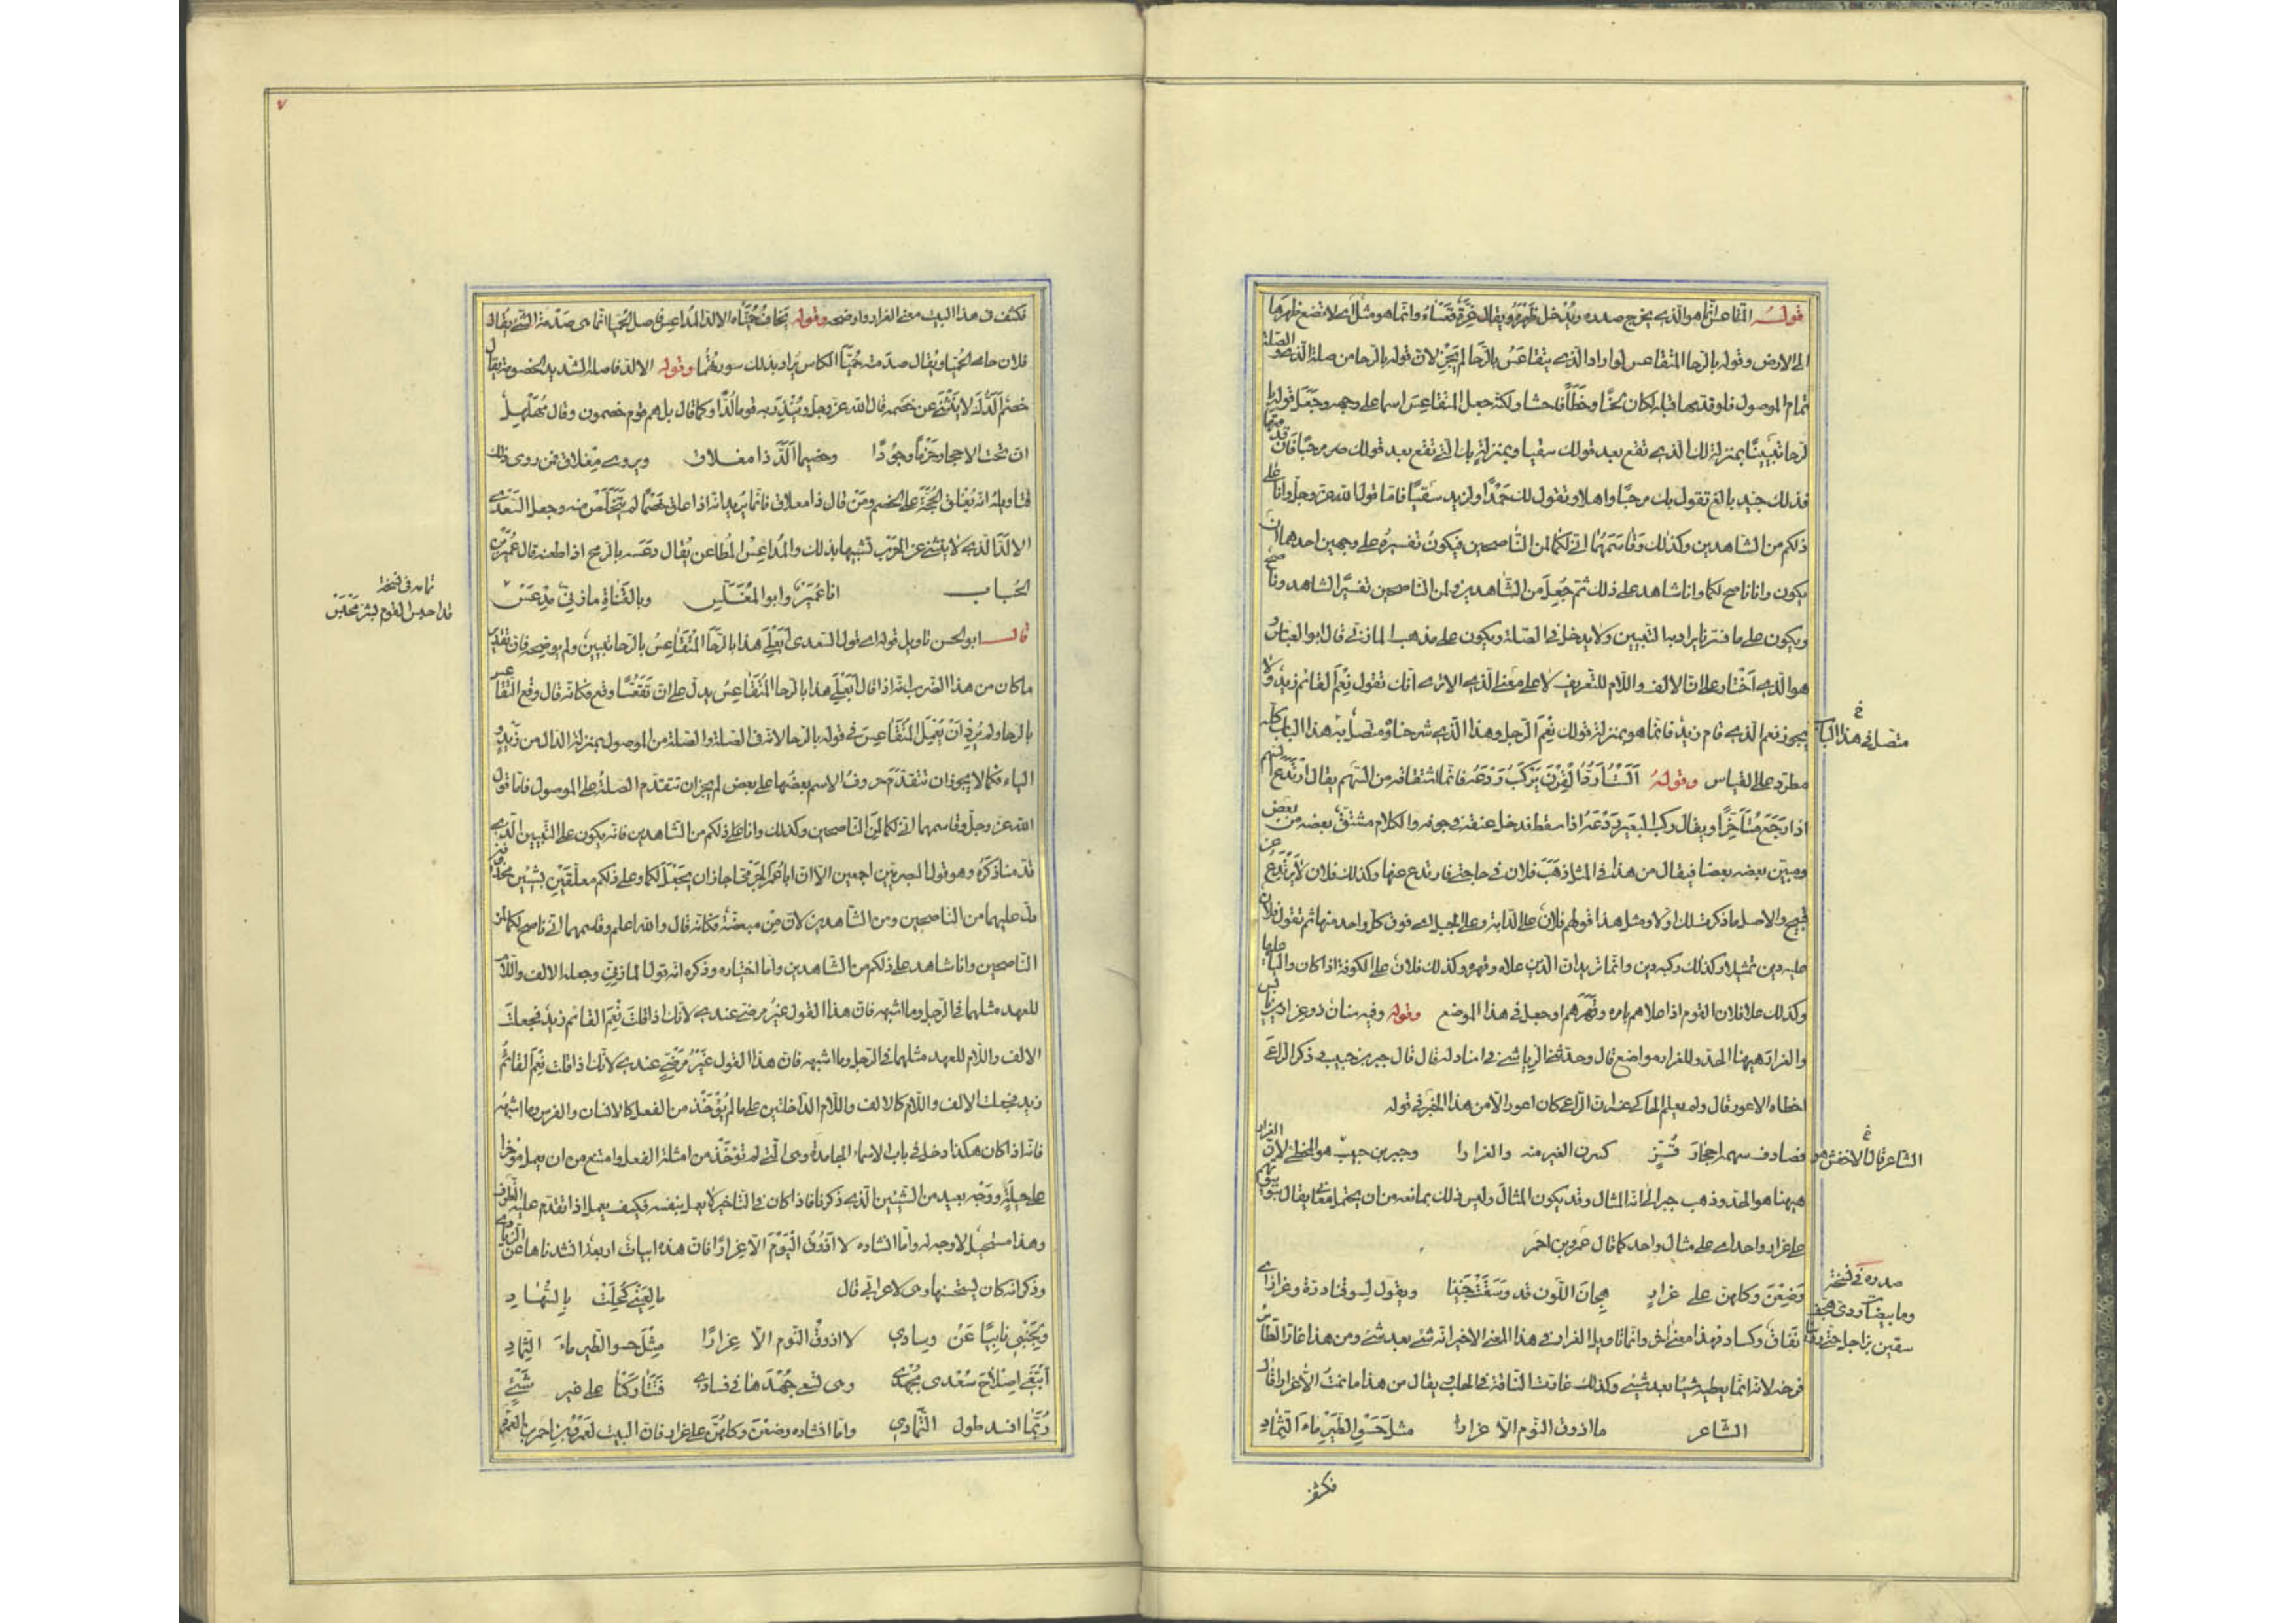 قولـه المتقاعس انما هو الذي يخرج صدره ويُدخل ظهره ويقال عِزّة قَعْساءُ وانما هو مثل اى لا تضع ظهرها
الى الارض وقوله بالرحا المتقاعس لو اراد الذي يتقاعَسُ بالرَّحا لم يَجُز لان قوله بالرحا من صلة الذي والصلة
تمام الموصول فلو قدمها قبله لكان لحنًا وخطَأً فاحشا ولكنه جعل المتقاعِسَ اسما على وجهه وجَعَلَ قوله با
لرحا تبيينًا بمنزلة لك الذي تقع بعد قولك سقيا وبمنزلةِ بك التي تقع بعد قولك مرحبًا فان قدمتها
فذلك جيد بالغ تقول بك مرحبًا واهلا وتقول لك حَمْدًا ولزيد سَقيًا فاما قول الله عز وجلّ وانا على
ذلكم من الشاهدين وكذلك وقَاسَمَهُما انّي لكما لمن النّاصحين فيكونُ تفسيرُه على وجهين احدهما ان
يكون وانا ناصح لكما وانا شاهد على ذلك ثم جُعِلَ من الشّاهدين ولمن الناصحين تفسيرًا لشاهد وناصح
ويكون على ما فسّرنا يراد به التبيين ولا يدخل في الصّلة ويكون على مذهب المازنيّ قال ابو العباس و
هو الّذي اَختار على ان الالف واللّام للتعريف لا على معنى الّذي الا ترى انّك تقول نِعْمَ القائم زيدٌ ولا
يجوز نعم الّذي قام زيدٌ فانّما هو بمنزلة قولك نِعْمَ الرّجل وهذا الّذي شرحناهُ متصلٌ به هذا الباب كلّه
متصل في هذا الباب
مطرد على القياس وقولهُ يَركَبُ رَدْعَهُ فانّما اشتقاقه من السّهم يقال ارتَدَعَ السّهم
اذا رَجَعَ مُتأخِّرًا ويقال ركب البعير رَدْعَهُ اذا سقط فدخل عنقه في جوفه والكلام مشتقّ بعضه من بعض
ومبيّن بعضه بعضا فيقال من هذا في المثل ذهَبَ فلان في حاجتي فارتدع عنها وكذلك فلان لا يَرْتَدِعُ عن
قبيح والاصل ما ذكرت لك اوّلا ومثل هذا قولهم فلانٌ على الدّابّة وعلى الجبل اى فوق كلّ واحد منهما ثم تقول فلان
عليه دين تمثيلا وكذلك ركبه دين وانّما تريد ان الدّين علاه وقهره وكذلك فلانٌ على الكوفة اذا كان واليا عليها
وكذلك علا فلان القوم اذا علاهم بامره وقَهَرَهم او جعل في هذا الموضع وقوله وفيه سنان ذو غرارين نابس
والغرار هيهنا الحد وللغرار مواضع قال وحدّثني الرّياشي في اسناد له قال قال جبر بن حبيب في ذكر الرّاعي
اخطاء الاعور قال ولم يعلم الحاكى عنه ان الرّاعي كان اعور الّا من هذا الخبر في قوله
فصادف سهمه احجارَ قُفٍّ كسرن العَيرَ منه والغرارا وجبر بن حبيب هو المخطئ لان الغرار
الشاعر قال الاخفش هو
هيهنا هو الحدّ وذهب جبر الى انّه المثال وقد يكون المثال وليس ذلك بمانعه من ان يحتمل معاني يقال بنوا بيوتهم
على غرار واحد اى على مثال واحد كما قال عمرو بن احمر
وَضِعْنَ وكلهنّ على غرارٍ هِجانَ اللّون قد وَسَقَتْ جَنينا ويقول لسوقنا درّة وغرارٌ اى
صدره في نسخة
وما بيضات ذى هجف
نَفاقٌ وكساد فهذا معنًى آخر وانّما تاويل الغرار في هذا المعنى الاخير انّه شئ بعد شئ ومن هذا غارّ الطائر
فرخه لانّه انّما يطيعه شيئًا بعد شئ وكذلك غارّت الناقة في الحلب يقال من هذا ما نمتُ الّا غرارا قال
الشّاعر ما اذوق النّوم الّا غرارا مثل حَسْوِ الطّيْرِ ماءَ الثّمادِ
فكشف
فكشف في هذا البيت معنى الغرار واوضحه وقوله يخاف حُمَيّاه الالدّ المداعس فاصل الحُميّا انّما هى صدمة الشّئ يقال
فلان حامى الحُميّا ويُقال صدمته حُمَيّا الكاس يُراد بذلك سورتُها وقوله الالدّ فاصله الشّديد الخصومة يقال
خصم اَلَدُّ اى لا ينثنى عن خصمه قال الله عز وجل وتُنْذِرَ به قومًا لُدًّا وكما قال بل هم قوم خصمون وقال مُهلهِلٌ
ان تحت الاحجار حَزْمًا وجُودًا وخصيمًا اَلَدَّ ذا مغلاق ويروى مِعْلاق فمن روى ذلك
فتاويله انّه يُغلق الحُجّة على الخصم ومَنْ قال ذا معلاق فانّما يريد انّه اذا علق خصمًا لم يَتَخَلَّصْ منه وجعل السّعديّ
الالدّ الّذي لا ينثنى عن الحرب تشبيها بذلك والمداعسُ المُطاعن يُقال دعَسه بالرّمح اذا طعنه قال عُمَيْرُ بنُ
الحُبـاب اناعُمَيْرٌ وابو المُغَلِّس وبالقَناةِ مازِنيّ مِدْعَسْ
تمامه في نسخة
قالـ ابو الحسن تاويل قوله اى قول السّعدى اَبَعْلِيَ هذا بالرّحا المُتَقاعِسُ بالرّحا تبيين ولم يوضحه فان تقدير
ما كان من هذا الضّرب انّه اذا قال اَبَعْلِيَ هذا بالرحا المُتَقاعِسُ يدلّ على انّ تَقَعُّسًا وقع فكانّه قال وقع التّقاعس
بالرحا ولم يُرِدْ اَنْ يُعْمِلَ المُتَقاعِسَ في قوله بالرّحا لانّه في الصّلة والصّلة من الموصول بمنزلة الدّال من زيد و
الياء فكما لا يجوز ان تتقدّم حروفُ الاسم بعضُها على بعض لم يجز ان تتقدّم الصّلةُ على الموصول فاما قول
الله عز وجلّ وقاسمهما انّي لكما لمن النّاصحين وكذلك وانا على ذلكم من الشاهدين فانّه يكون على التّبيين الّذي
قدّمنا ذكرَهُ وهو قول البصريّين اجمعين الّا انّ ابا عُمَرَ الجَرْمِيّ اجاز ان يَجْعَلَ لكما وعلى ذلكم معلّقَيْنِ بشَيْئَيْنِ محذوفين
دلّ عليهما من النّاصحين ومن الشّاهدين لانّ مِن مبعضة فكانّه قال والله اعلم وقاسمهما انّي ناصح لكما لمن
النّاصحين وانا شاهد على ذلكم من الشّاهدين وامّا اختياره وذكره انّه قول المازنيّ وجعله الالف واللّام
للعهد مثلهما في الرّجل وما اشبهه فانّ هذا القول غيرُ مرضيّ عندي لانّك اذا قلتَ نِعْمَ القائم زيدٌ فجعلتَ
الالف واللّام للعهد مثلهما في الرّجل وما اشبهه فان هذا القول غيْرُ مَرْضِيّ عندي لانّك اذا قلت نِعْمَ القائمُ
زيد فجعلت الالف واللّام كالالف واللّام الدّاخلتين على ما لم يُؤْخَذْ من الفعل كالانسان والفرس وما اشبهَهُ
فانّه اذا كان هكذا دخل في باب الاسماء الجامدة وهى الّتي لم تُؤخَذْ من امثلة الفعل وامتنع من ان يعمل مؤخرا
على حِيلَةٍ ووَجْهٍ بعيد من الشّيئين الّذى ذكرنا فاذا كان في التّاخير لا يعمل بنفسه فكيف يعمل اذا تقدّم عليه الظّرف
وهذا مستحيلٌ لا وجه له وامّا انشاده لا اَذوقُ النّوْمَ الّا غِرارًا فانّ هذه ابياتٌ اربعةٌ انشدناها عن الزيادي
وذكر انّه كان يستحسنها وهى لاعرابيّ قال ما لِعَيْني كُحِلَتْ بِالسُّهادِ
ولِجَنْبِي نابِيًا عَنْ وِسادي لا اذوقُ النّوم الّا غِرارًا مِثْلَ حسو الطّيرِ ماءَ الثِّمادِ
اَبْتَغي اِصْلاحَ سُعْدى بجُهْدى وهى تسعى جُهْدَها في فسادى فَتَتارَكْنا على غير شَيْءٍ
رُبّما افسد طول التّمادي وامّا انشاده وَضَعْنَ وكلهُنّ على غرار فانّ البيت لعَمْرِو بن احمر بن العمرّد